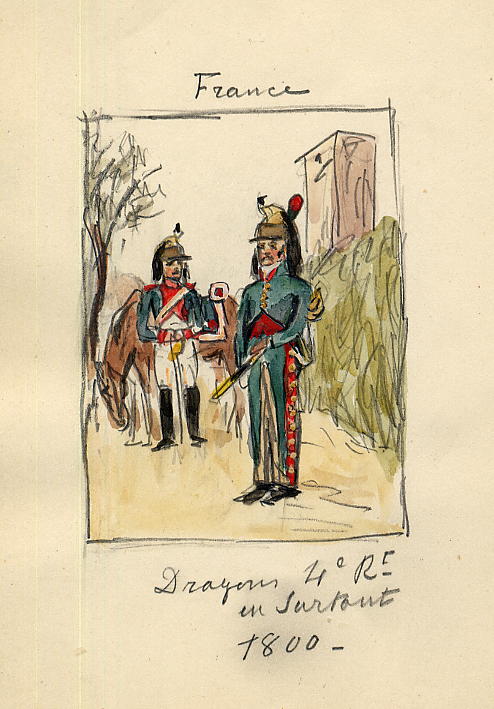 France
Dragons 4e Rt
en Surtout
1800 -